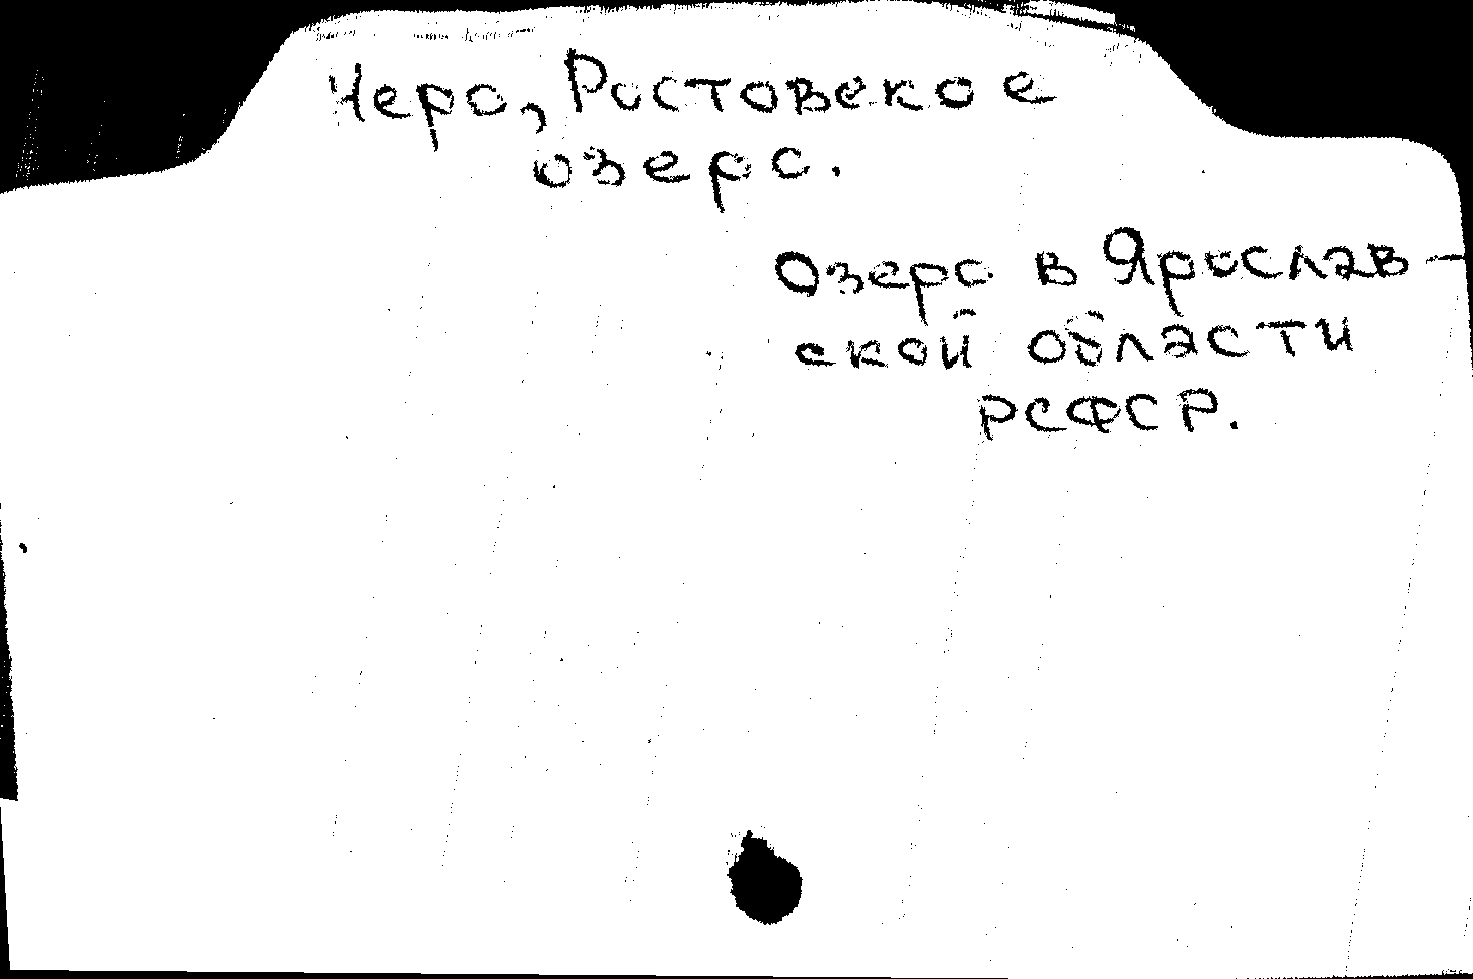 Неро, Ростовское
озеро.
Озеро в Ярослав-
ской области
РСФСР.